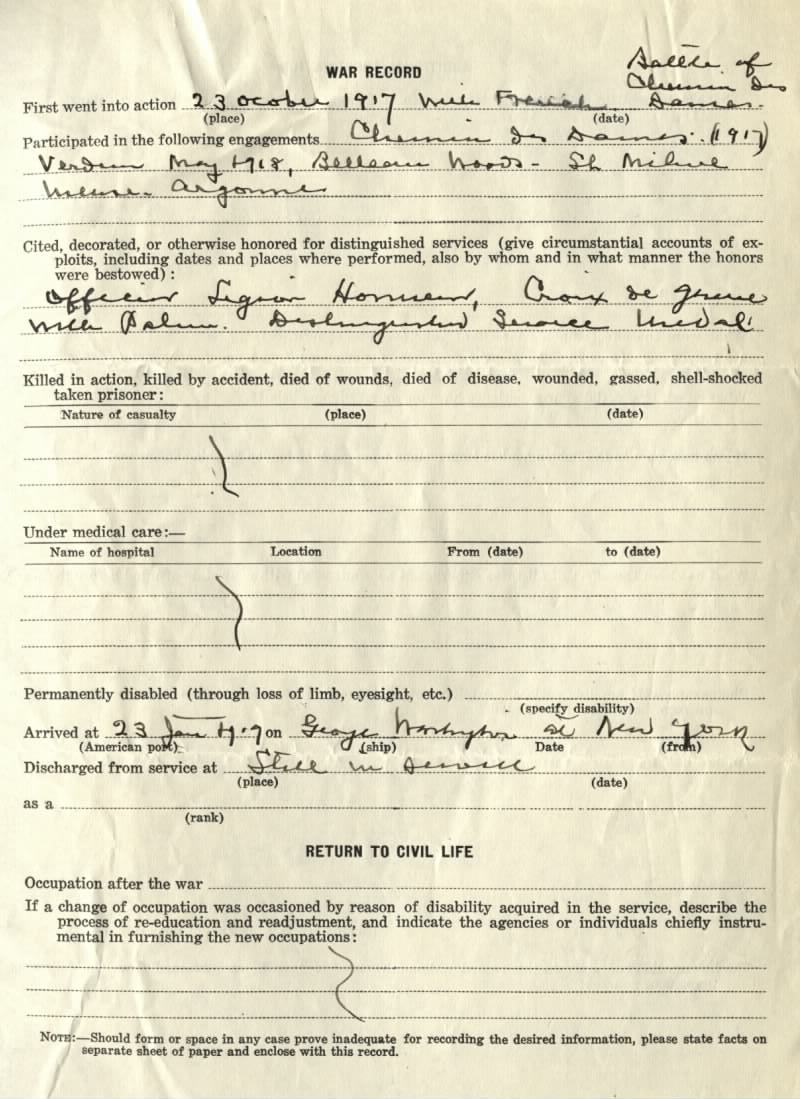 WAR RECORD
Battle of
Chemin Des
First went into action 23 October 1917 with French Dames.
(place) (date)
Participated in the following engagements Chemin Des Dames. (1917)
Verdun May 1918, Belleau Woods - St Mihiel
Meuse-Argonne
Cited, decorated, or otherwise honored for distinguished services (give circumstantial accounts of ex-
ploits, including dates and places where performed, also by whom and in what manner the honors
were bestowed):
Officer Legion Honneur, Croix de Guerre
with Palm. Distinguished Service Medal
Killed in action, killed by accident, died of wounds, died of disease, wounded, gassed, shell-shocked
taken prisoner:
Nature of casualty (place) (date)
Under medical care:—
Name of hospital Location From (date) to (date)
Permanently disabled (through loss of limb, eyesight, etc.)
(specify disability)
Arrived at 23 Jan 1919 on George Washington at New York
(American port) (ship) Date (from)
Discharged from service at Still in service
(place) (date)
as a
(rank)
RETURN TO CIVIL LIFE
Occupation after the war
If a change of occupation was occasioned by reason of disability acquired in the service, describe the
process of re-education and readjustment, and indicate the agencies or individuals chiefly instru-
mental in furnishing the new occupations:
NOTE:—Should form or space in any case prove inadequate for recording the desired information, please state facts on
separate sheet of paper and enclose with this record.